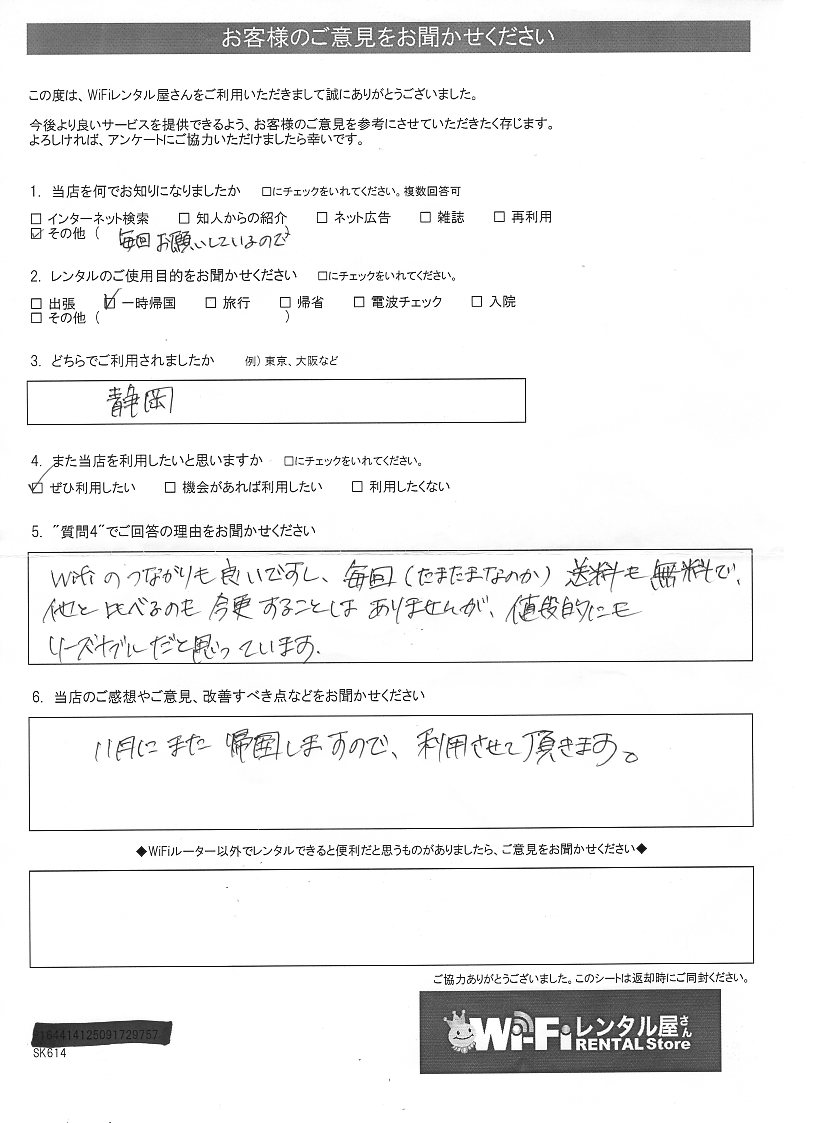 お客様のご意見をお聞かせください
この度は、WiFiレンタル屋さんをご利用いただきまして誠にありがとうございました。
今後より良いサービスを提供できるよう、お客様のご意見を参考にさせていただきたく存じます。
よろしければ、アンケートにご協力いただけましたら幸いです。
1. 当店を何でお知りになりましたか □にチェックをいれてください。複数回答可
□ インターネット検索 □ 知人からの紹介 □ ネット広告 □ 雑誌 □ 再利用
☑ その他 ( 毎回お願いしているので )
2. レンタルのご使用目的をお聞かせください □にチェックをいれてください。
□ 出張 ☑ 一時帰国 □ 旅行 □ 帰省 □ 電波チェック □ 入院
□ その他 ( )
3. どちらでご利用されましたか 例) 東京、大阪など
静岡
4. また当店を利用したいと思いますか □にチェックをいれてください。
☑ ぜひ利用したい □ 機会があれば利用したい □ 利用したくない
5. "質問4"でご回答の理由をお聞かせください
Wifiのつながりも良いですし、毎回(たまたまなのか)送料も無料で、
他と比べるのも今更することはありませんが、値段的にも
リーズナブルだと思っています.
6. 当店のご感想やご意見、改善すべき点などをお聞かせください
11月にまた帰国しますので、利用させて頂きます。
◆WiFiルーター以外でレンタルできると便利だと思うものがありましたら、ご意見をお聞かせください◆
ご協力ありがとうございました。このシートは返却時にご同封ください。
Wi-Fiレンタル屋さん
RENTAL Store
SK614